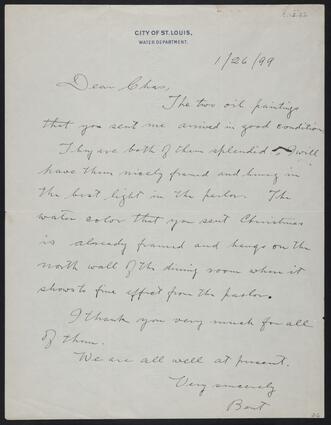 CITY OF ST. LOUIS,
WATER DEPARTMENT.
1/26/99
Dear Chas,
The two oil paintings
that you sent me arrived in good condition
They are both of them splendid & I will
have them nicely framed and hung in
the best light in the parlor. The
water color that you sent Christmas
is already framed and hangs on the
north wall of the dining room where it
shows to fine effect from the parlor.
I thank you very much for all
of them.
We are all well at present.
Very sincerely
Bent